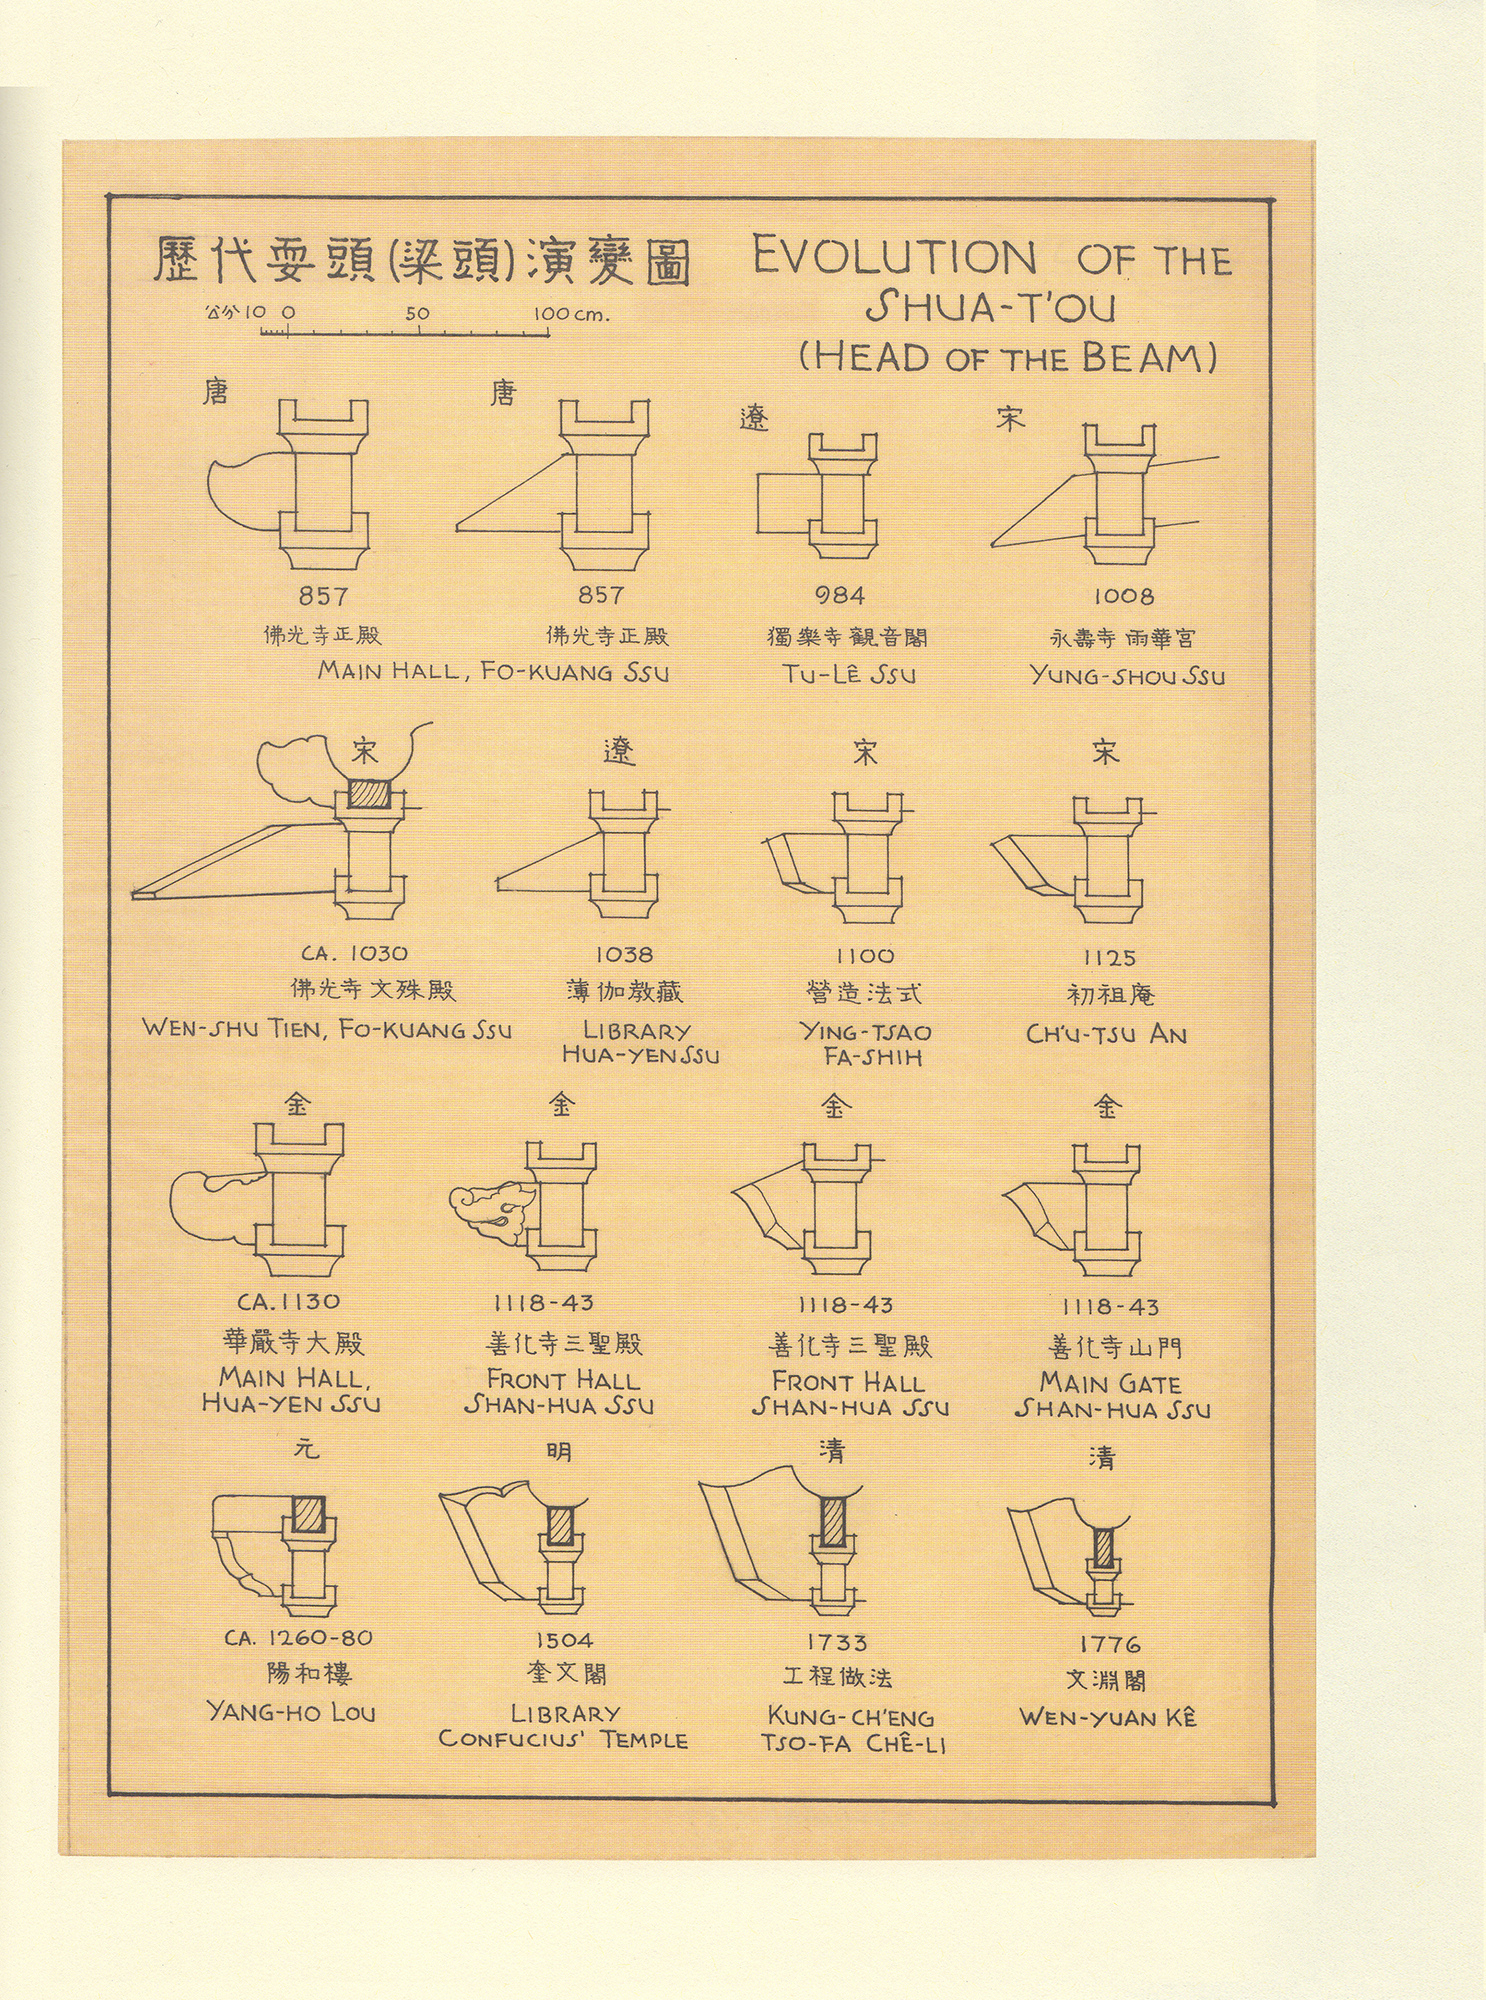 歷代耍頭(梁頭)演變圖
EVOLUTION OF THE
SHUA-T'OU
(HEAD OF THE BEAM)
公分 10 0 50 100 cm.
唐
857
佛光寺正殿
唐
857
佛光寺正殿
MAIN HALL, FO-KUANG SSU
遼
984
獨樂寺觀音閣
TU-LÊ SSU
宋
1008
永壽寺雨華宮
YUNG-SHOU SSU
宋
CA. 1030
佛光寺文殊殿
WEN-SHU TIEN, FO-KUANG SSU
遼
1038
薄伽教藏
LIBRARY
HUA-YEN SSU
宋
1100
營造法式
YING-TSAO
FA-SHIH
宋
1125
初祖庵
CH'U-TSU AN
金
CA. 1130
華嚴寺大殿
MAIN HALL,
HUA-YEN SSU
金
1118-43
善化寺三聖殿
FRONT HALL
SHAN-HUA SSU
金
1118-43
善化寺三聖殿
FRONT HALL
SHAN-HUA SSU
金
1118-43
善化寺山門
MAIN GATE
SHAN-HUA SSU
元
CA. 1260-80
陽和樓
YANG-HO LOU
明
1504
奎文閣
LIBRARY
CONFUCIUS' TEMPLE
清
1733
工程做法
KUNG-CH'ENG
TSO-FA CHÊ-LI
清
1776
文淵閣
WEN-YUAN KÊ